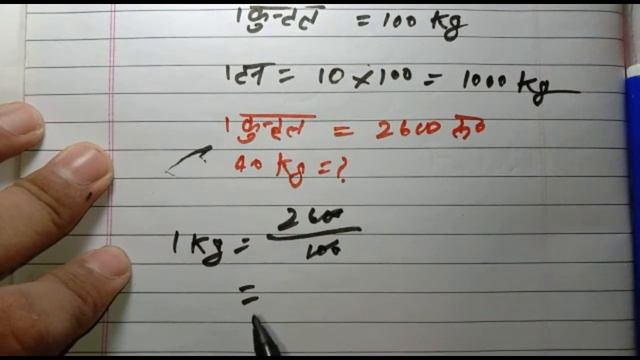 1 कुन्तल = 100 kg
1 टन = 10 × 100 = 1000 kg
1 कुन्तल = 2600 रू०
40 kg = ?
1 kg = 2600 / 100
=